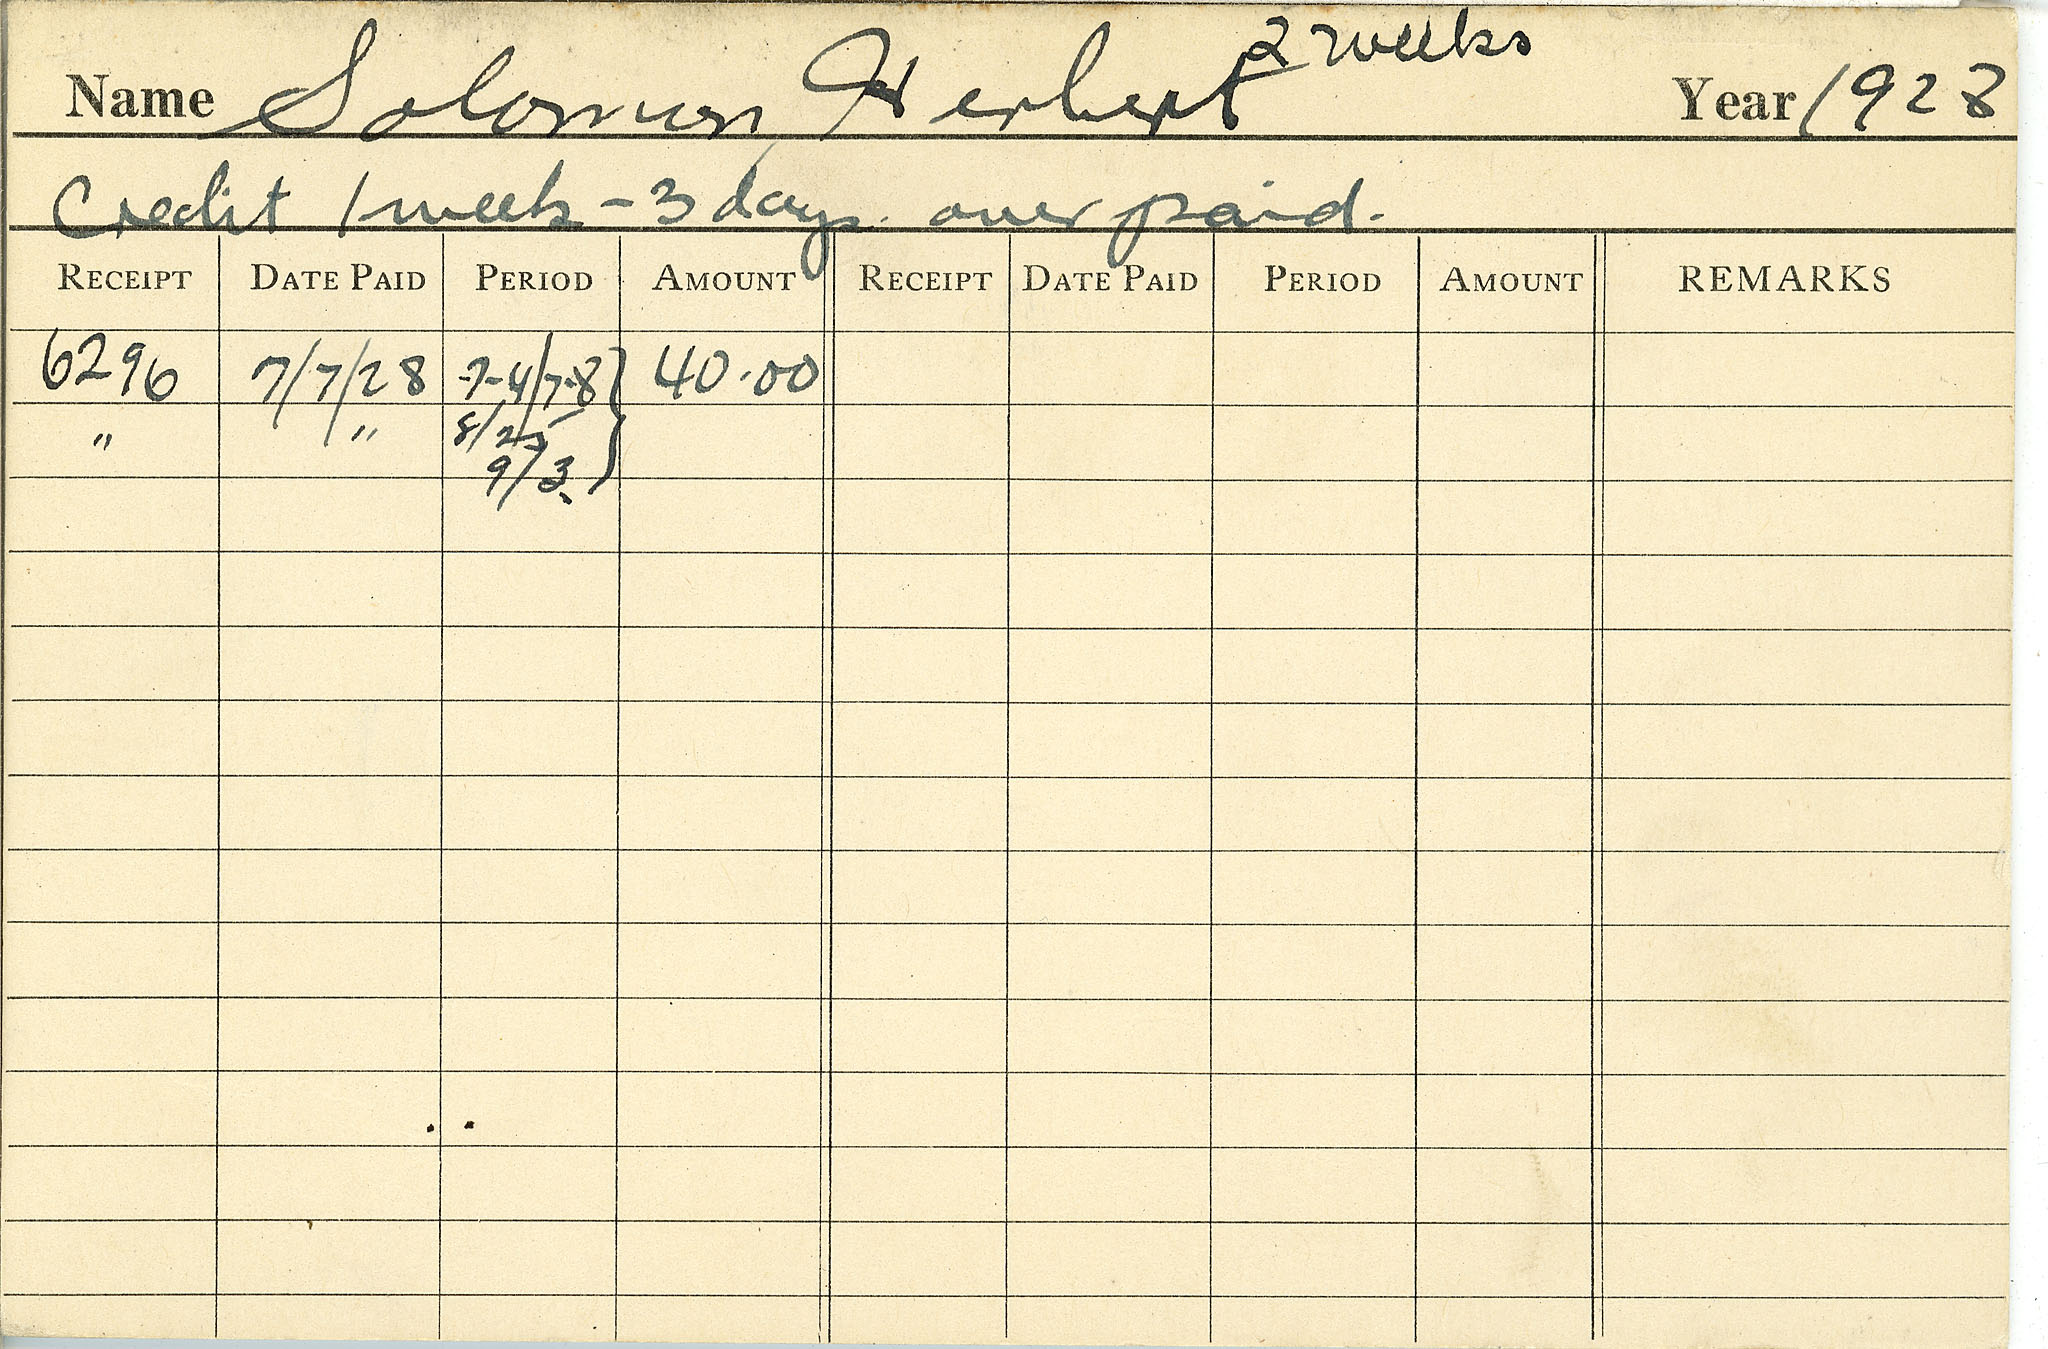 2 weeks
Name Solomon Herbert Year 1928
Credit 1 week - 3 days. over paid.
RECEIPT DATE PAID PERIOD AMOUNT RECEIPT DATE PAID PERIOD AMOUNT REMARKS
6296 7/7/28 7-4/7-8 } 40.00
" " 8/25
9/3